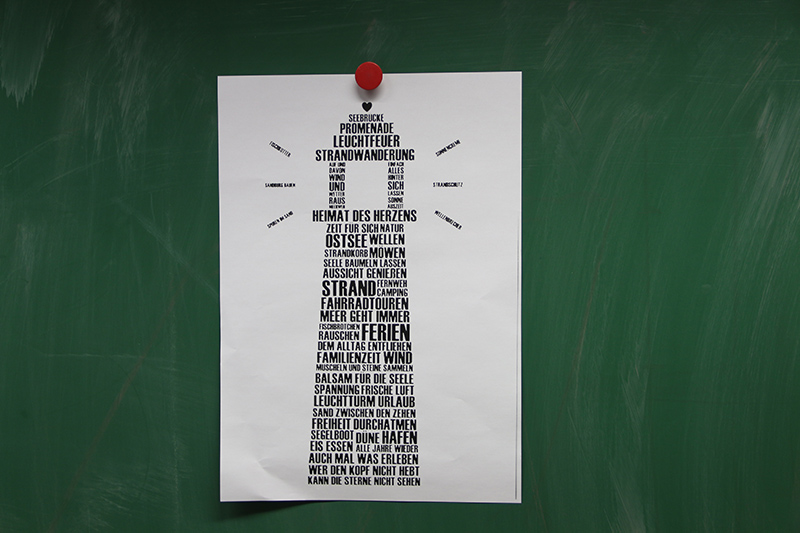 SEEBRÜCKE
PROMENADE
LEUCHTFEUER
STRANDWANDERUNG
AUF UND
DAVON
WIND
UND
WETTER
RAUS
EINFACH
ALLES
HINTER
SICH
LASSEN
SONNE
AUSZEIT
SANDBURG BAUEN
SONNENCREME
STRANDSCHUTZ
WELLENBRECHER
HEIMAT DES HERZENS
ZEIT FÜR SICH NATUR
OSTSEE WELLEN
STRANDKORB MÖWEN
SEELE BAUMELN LASSEN
AUSSICHT GENIEßEN
STRAND FERNWEH
CAMPING
FAHRRADTOUREN
MEER GEHT IMMER
FISCHBRÖTCHEN
RAUSCHEN FERIEN
DEM ALLTAG ENTFLIEHEN
FAMILIENZEIT WIND
MUSCHELN UND STEINE SAMMELN
BALSAM FÜR DIE SEELE
SPANNUNG FRISCHE LUFT
LEUCHTTURM URLAUB
SAND ZWISCHEN DEN ZEHEN
FREIHEIT DURCHATMEN
SEGELBOOT DÜNE HAFEN
EIS ESSEN ALLE JAHRE WIEDER
AUCH MAL WAS ERLEBEN
WER DEN KOPF NICHT HEBT
KANN DIE STERNE NICHT SEHEN